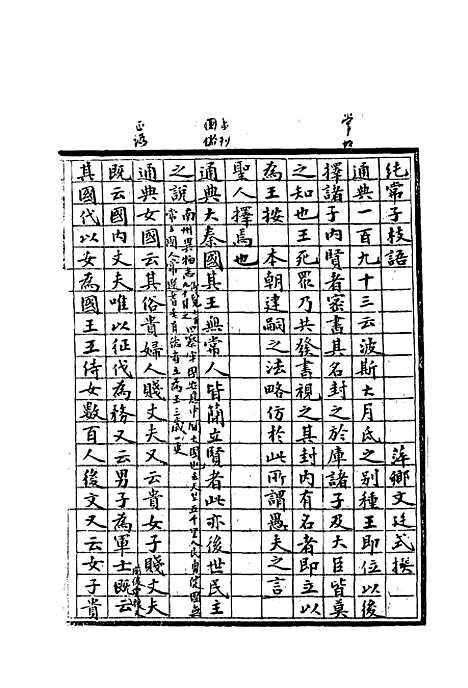 純常子枝語
萍鄉文廷式撰
通典一百九十三云波斯大月氐之别種王即位以後
擇諸子内賢者密書其名封之於庫諸子及大臣皆莫
之知也王死眾乃共發書視之其封内有名者即立以
為王按　本朝建嗣之法略仿於此所謂愚夫之言
聖人擇焉也
通典大秦國其王無常人皆簡立賢者此亦後世民主
之說
通典女國云其俗貴婦人賤丈夫又云貴女子賤丈夫
既云國内丈夫唯以征伐為務又云男子為軍士既云
其國代以女為國王王侍女數百人後文又云女子貴